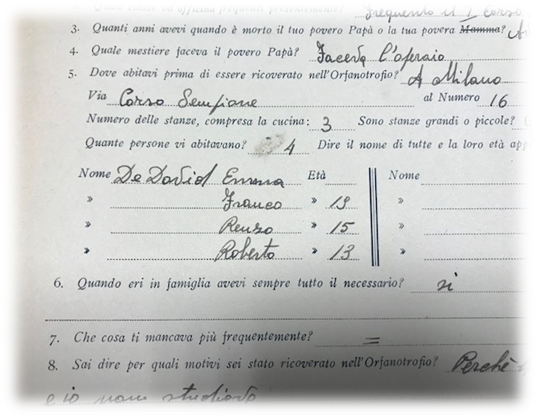 Frequento il I Corso
3. Quanti anni avevi quando è morto il tuo povero Papà o la tua povera Mamma?
4. Quale mestiere faceva il povero Papà? Faceva l'operaio
5. Dove abitavi prima di essere ricoverato nell'Orfanotrofio? A Milano
Via Corso Sempione al Numero 16
Numero delle stanze, compresa la cucina: 3 Sono stanze grandi o piccole?
Quante persone vi abitavano? 4 Dire il nome di tutte e la loro età
Nome De David Età Nome
» Franco » 19 »
» Renzo » 15 »
» Roberto » 13 »
6. Quando eri in famiglia avevi sempre tutto il necessario? si
7. Che cosa ti mancava più frequentemente? =
8. Sai dire per quali motivi sei stato ricoverato nell'Orfanotrofio? Perchè
e io non studiavo